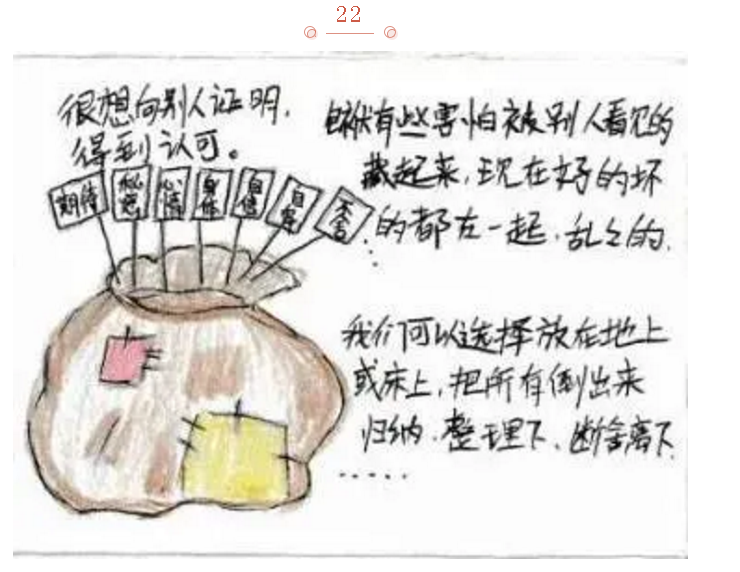 22
很想向别人证明,
得到认可。
期待
秘密
心情
身体
自信
自卑
包袱有些害怕被别人看见的
藏起来,现在好的坏
的都在一起.乱乱的.
我们可以选择放在地上
或床上,把所有倒出来
归纳.整理下.断舍离下.